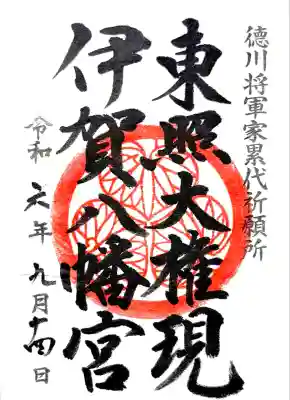 徳川将軍家累代祈願所
東照大権現
伊賀八幡宮
令和六年九月十四日